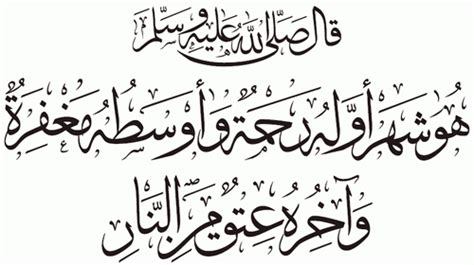 قال صلى الله عليه وسلم
هو شهر أوله رحمة وأوسطه مغفرة
وآخره عتق من النار